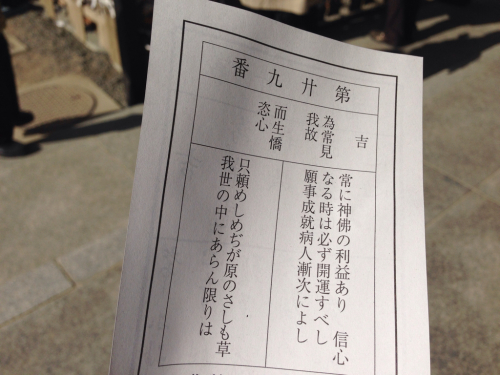 第廿九番
吉
為常見
我故
而生憍
恣心
常に神佛の利益あり　信心
なる時は必ず開運すべし
願事成就病人漸次によし
只頼めしめぢが原のさしも草
我世の中にあらん限りは